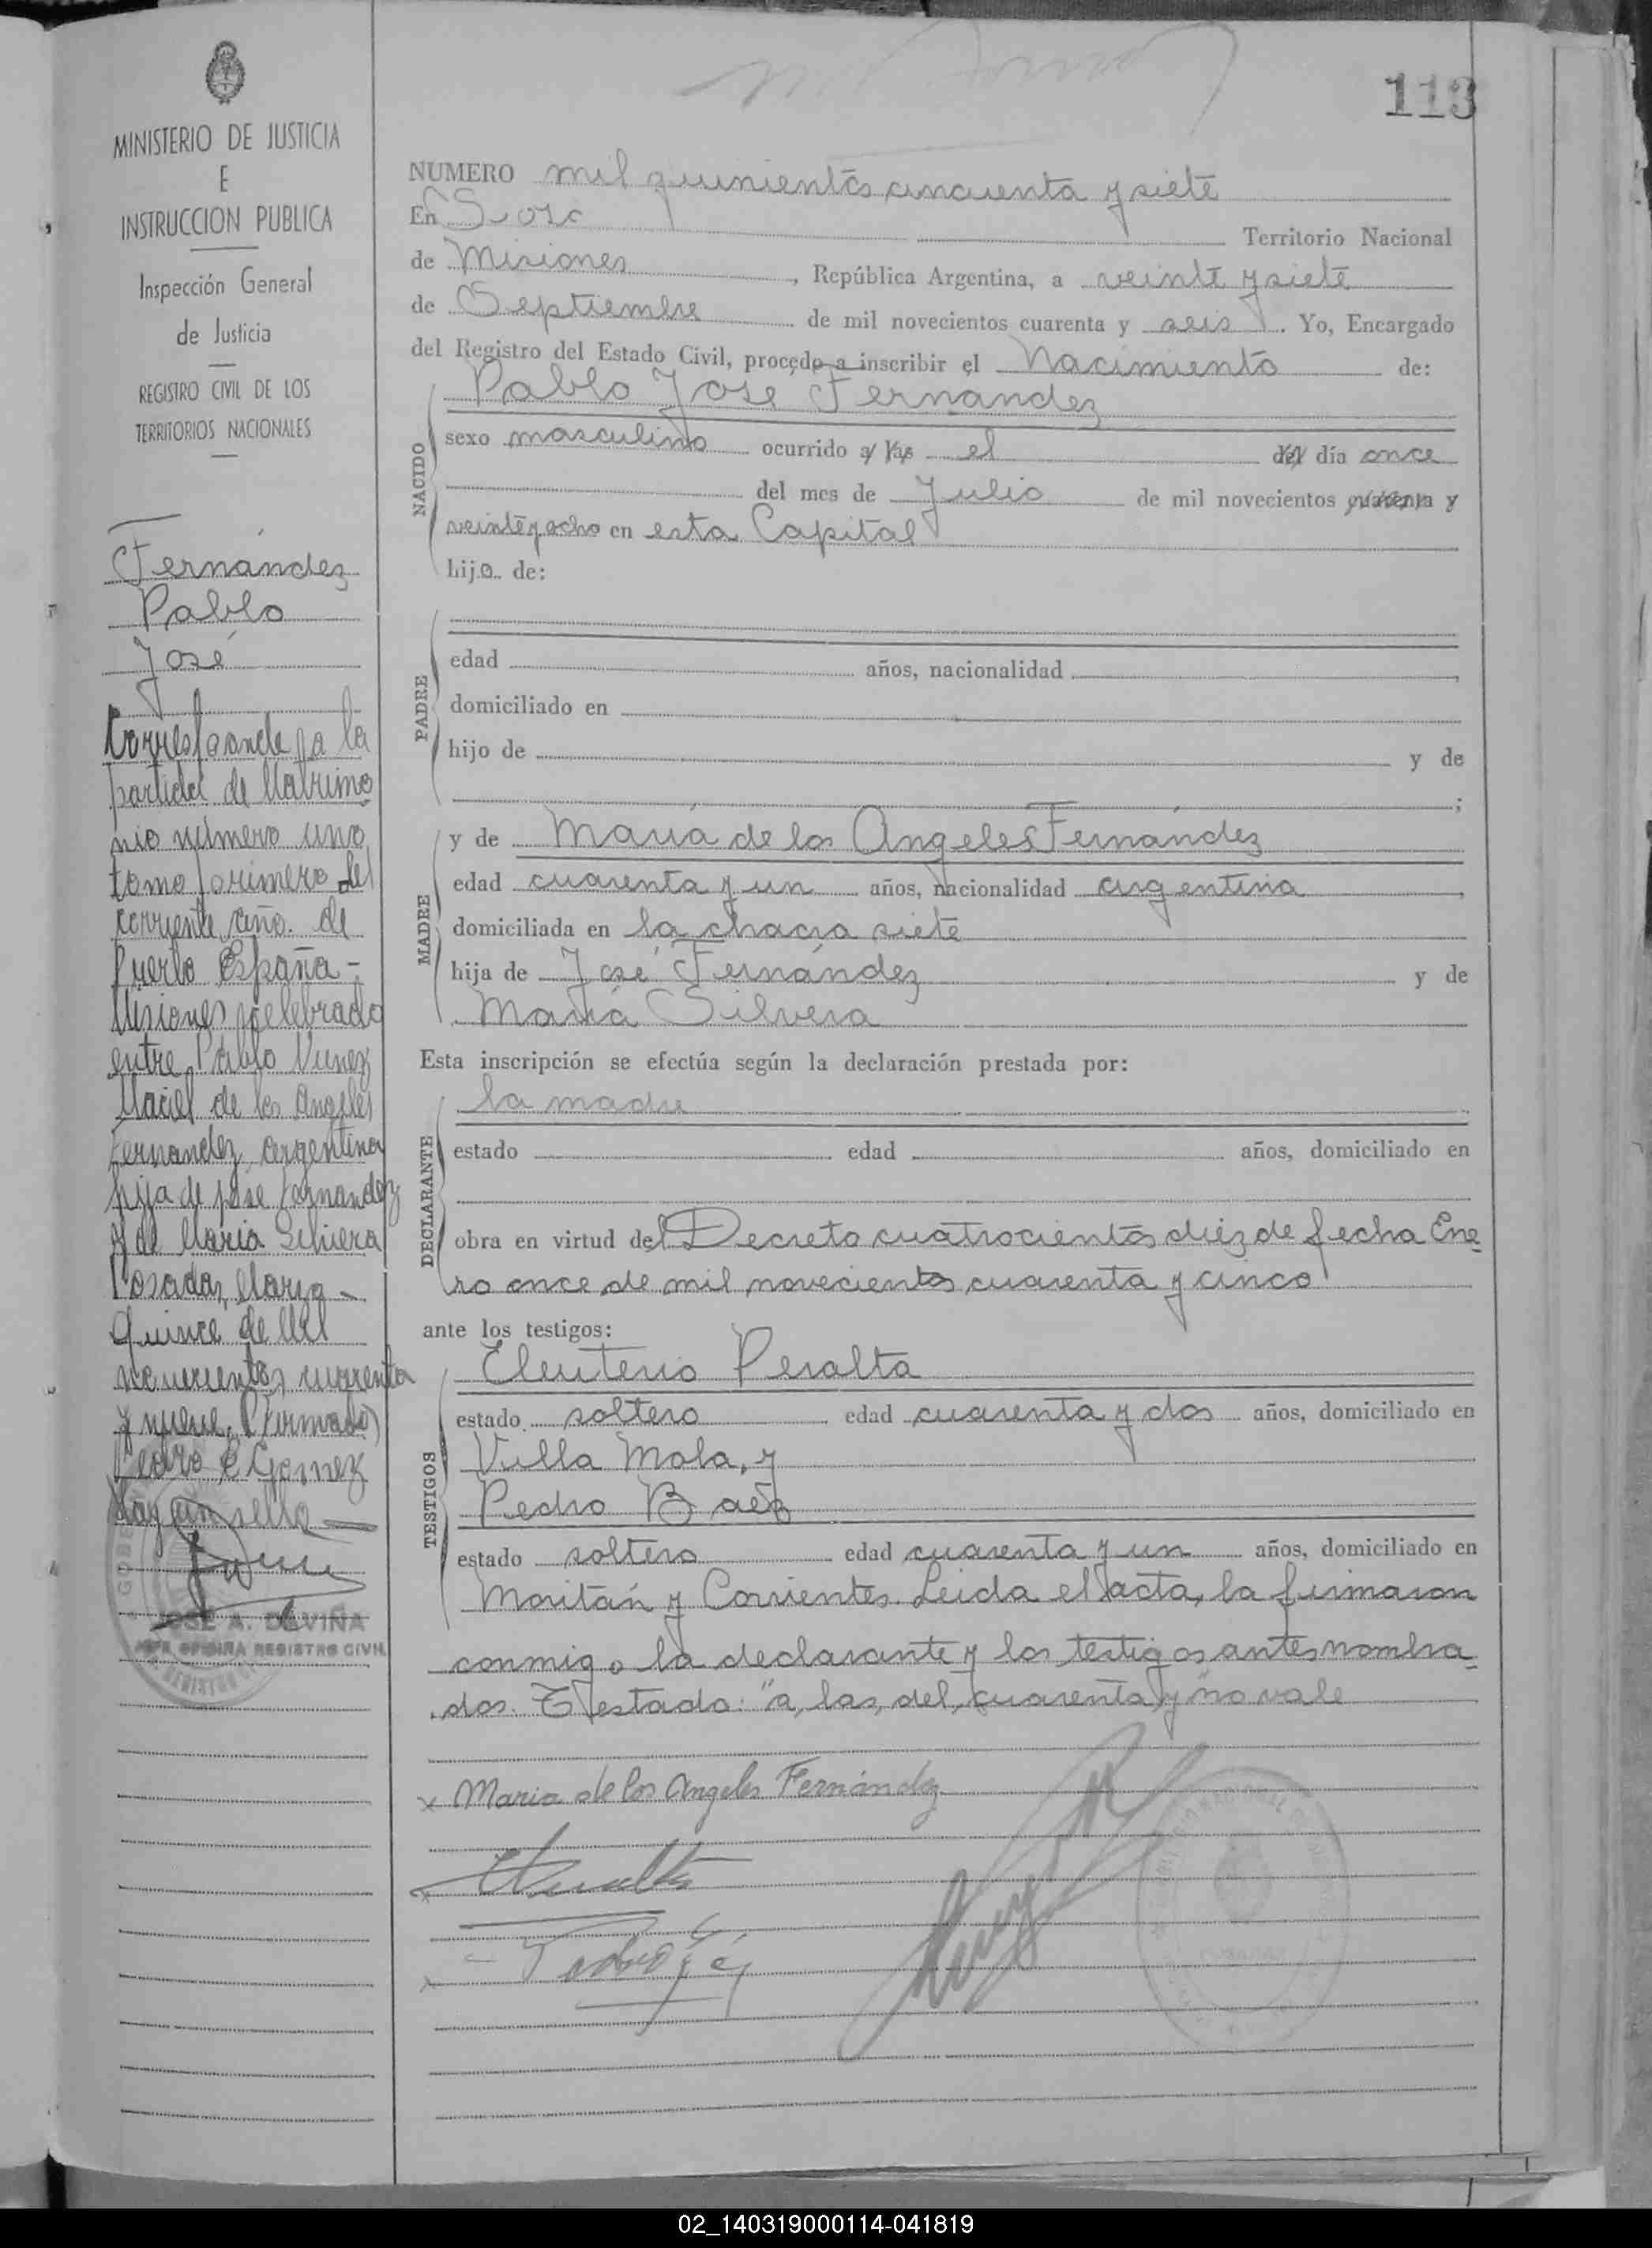 113
MINISTERIO DE JUSTICIA
E
INSTRUCCION PUBLICA
Inspección General
de Justicia
REGISTRO CIVIL DE LOS
TERRITORIOS NACIONALES
Fernández
Pablo
José
Corresponde a la
partida de Matrimo
nio número uno
tomo primero del
corriente año. de
Puerto España -
Misiones celebrado
entre Pablo Nunez
de los Angeles
Fernandez, argentina
hija de jose Fernandez
y de Maria Silviera
Posadas, Marzo -
quince de Mil
novecientos cuarenta
y nueve. (Firmado)
Pedro E Gomez
Hay un sello
JOSE A. DAVIÑA
REGISTRO CIVIL
NUMERO mil quinientos cincuenta y siete
En Territorio Nacional
de Misiones, República Argentina, a veinte y siete
de Septiembre de mil novecientos cuarenta y seis. Yo, Encargado
del Registro del Estado Civil, procedo a inscribir el Nacimiento de:
NACIDO
Pablo José Fernández
sexo masculino ocurrido a las el del día once
del mes de Julio de mil novecientos cuarenta y
veinte y ocho en esta Capital
hijo de:
PADRE
edad años, nacionalidad
domiciliado en
hijo de y de
;
MADRE
y de María de los Angeles Fernández
edad cuarenta y un años, nacionalidad argentina
domiciliada en la chacra siete
hija de José Fernández y de
María Silvera
Esta inscripción se efectúa según la declaración prestada por:
DECLARANTE
la madre
estado edad años, domiciliado en
obra en virtud del Decreto cuatrocientos diez de fecha Ene
ro once de mil novecientos cuarenta y cinco
ante los testigos:
TESTIGOS
Eleuterio Peralta
estado soltero edad cuarenta y dos años, domiciliado en
Villa Mola, y
Pedro Baéz
estado soltero edad cuarenta y un años, domiciliado en
Moritán y Corrientes. Leida el acta, la firmaron
conmigo la declarante y los testigos antes nombra
dos. Testado: "a, las, del, cuarenta y" no vale
x Maria de los Angeles Fernández
02_140319000114-041819